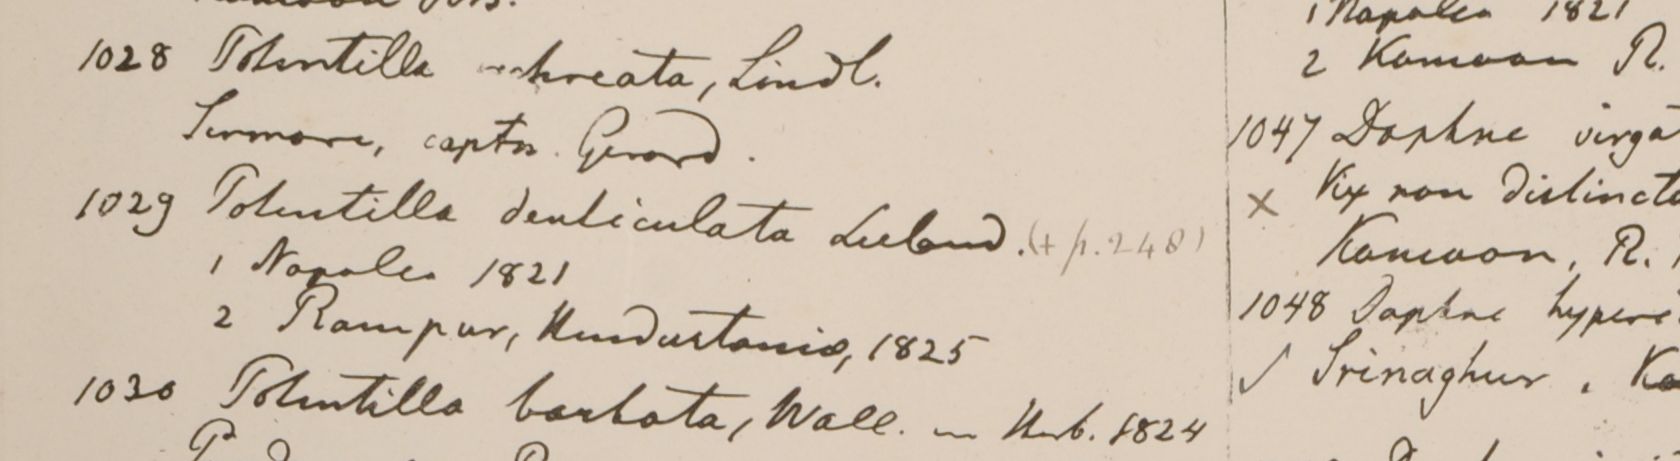 1028 Potentilla ochreata, Lindl.
Sirmore, captn. Gerard.
1029 Potentilla denticulata Lecband. (+ p. 248)
1 Napalea 1821
2 Rampur, Hindustania, 1825
1030 Potentilla barbata, Wall. in Herb. 1824
1 Napalea 1821
2 Kamaon R.
1047 Daphne virga
x Vix non distincta
Kamaon, R.
1048 Daphne hypere
✓ Srinaghur, Ka